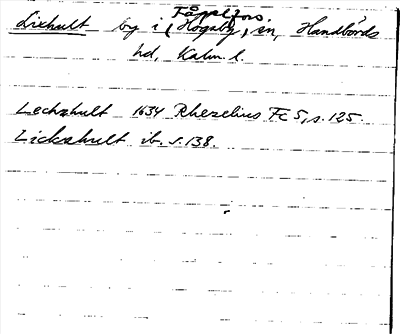 Fågelfors.
Lixhult by i (Högsby, sn, Handbörds
hd, Kalm. l.
Lechzhult 1634 Rhezelius Fc 5, s. 125.
Lickzhult ib. s. 138.